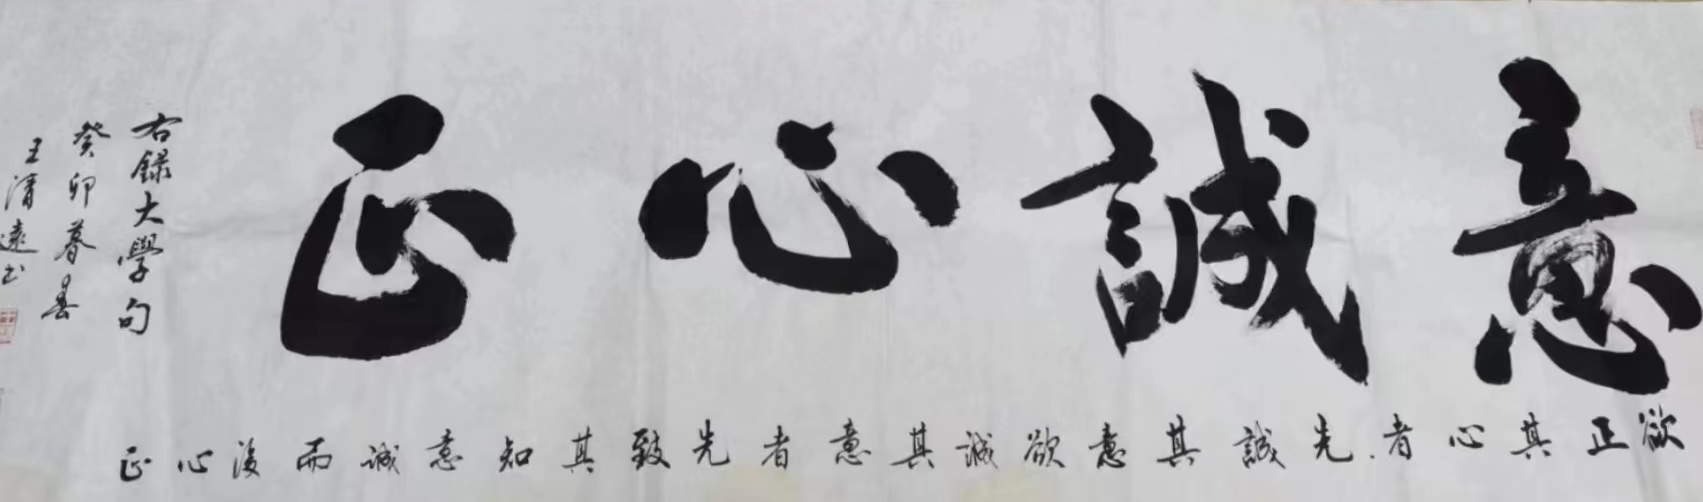 意誠心正
欲正其心者先誠其意欲誠其意者先致其知意誠而後心正
右録大學句
癸卯暮春
王清遠书